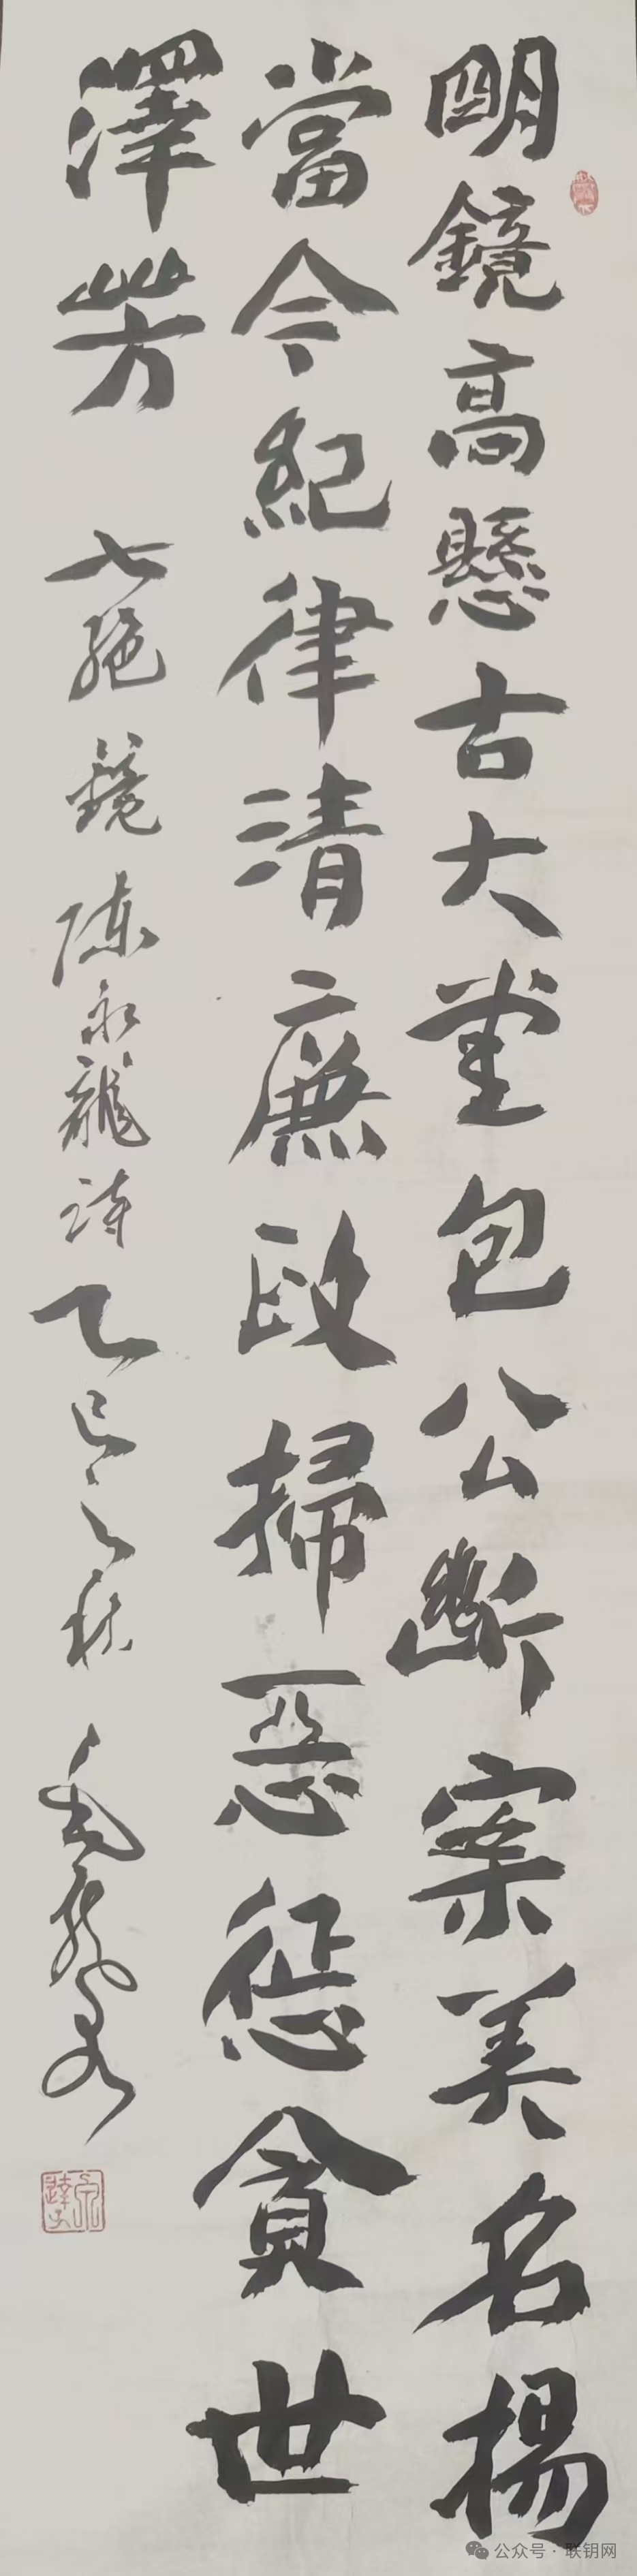 明鏡高懸古大堂包公斷案美名揚
當今紀律清廉政掃惡懲貪世
澤芳 七絕 鏡 陳永龍詩 乙巳之秋
公众号·联钥网